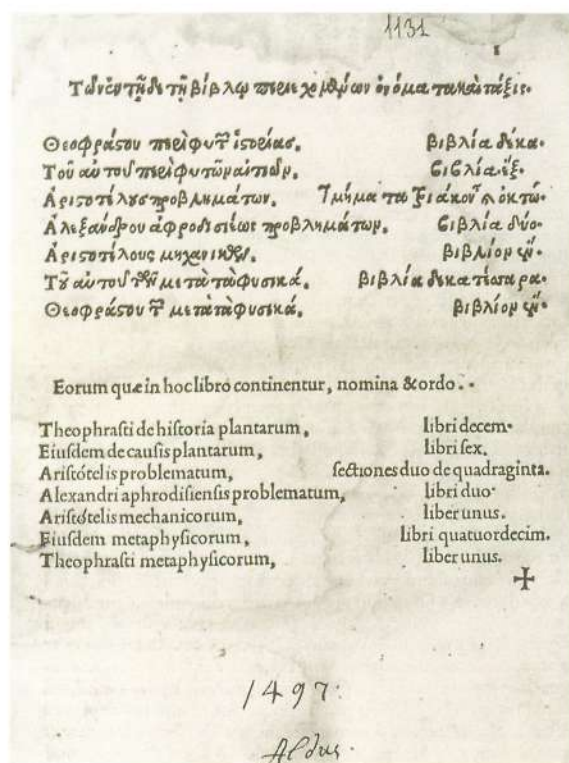 1131
1
Τῶν ἐν τῇδε τῇ βίβλῳ περιεχομένων ὀνόματα καὶ τάξις.
Θεοφράστου περὶ φυτῶν ἱστορίας, βιβλία δέκα.
Τοῦ αὐτοῦ περὶ φυτῶν αἰτιῶν, βιβλία ἕξ.
Ἀριστοτέλους προβλημάτων, τμήματα τριάκοντα ὀκτώ.
Ἀλεξάνδρου ἀφροδισιέως προβλημάτων, βιβλία δύο.
Ἀριστοτέλους μηχανικῶν, βιβλίον ἕν.
Τοῦ αὐτοῦ τῶν μετὰ τὰ φυσικά, βιβλία δεκατέσσαρα.
Θεοφράστου τῶν μετὰ τὰ φυσικά, βιβλίον ἕν.
Eorum quæ in hoc libro continentur, nomina & ordo.
Theophrasti de historia plantarum, libri decem.
Eiusdem de causis plantarum, libri sex.
Aristótelis problematum, sectiones duo de quadraginta.
Alexandri aphrodisiensis problematum, libri duo.
Aristótelis mechanicorum, liber unus.
Eiusdem metaphysicorum, libri quatuordecim.
Theophrasti metaphysicorum, liber unus.
1497.
Aldus.